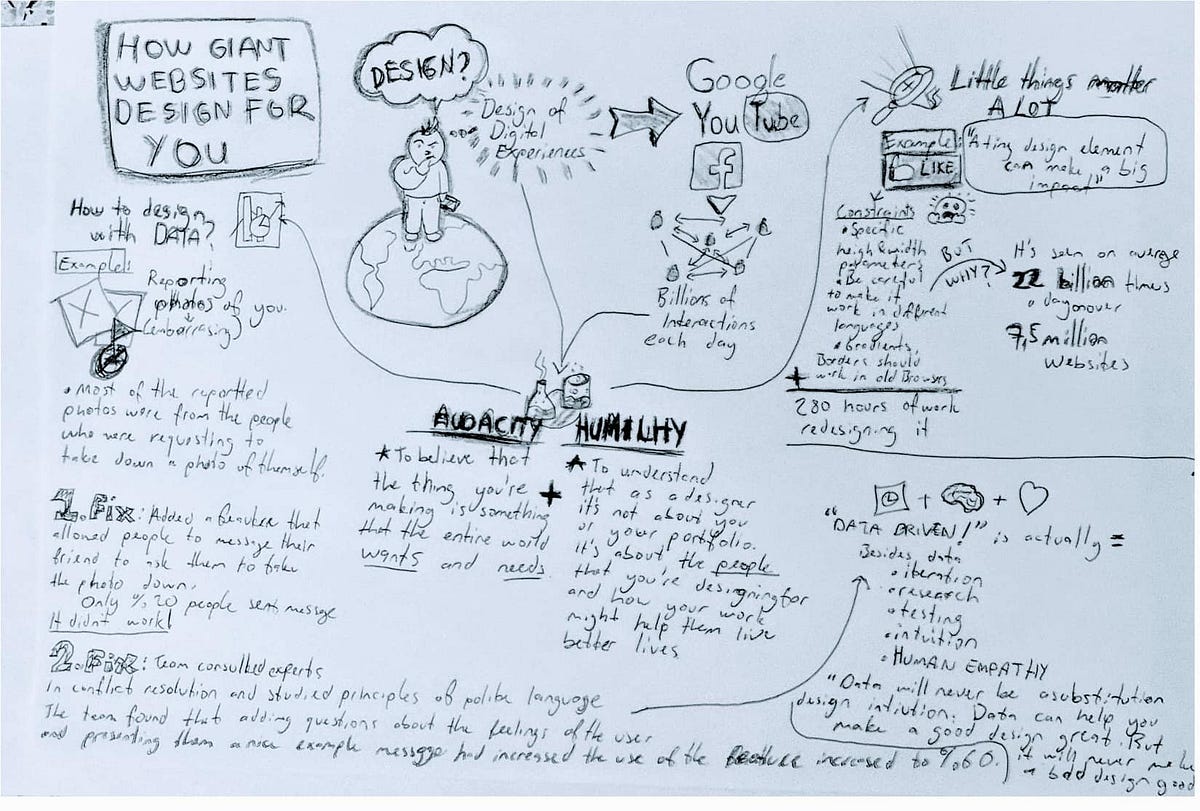 HOW GIANT
WEBSITES
DESIGN FOR
YOU
DESIGN?
Design of
Digital
Experiences
Google
YouTube
f
Billions of
Interactions
each day
Little things matter
A LOT
Example:
LIKE
"A tiny design element
can make a big
impact"
Constraints
• Specific
heigh&width
parameters
• Be careful
to make it
work in different
languages
• Gradients,
Borders should
work in old Browsers
+
280 hours of work
redesigning it
BUT
WHY?
It's seen on average
22 billion times
a day on over
7,5 million
websites
How to design
with DATA?
Example:
Reporting
photos of you.
(embarrasing)
• Most of the reportted
photos were from the people
who were requesting to
take down a photo of themself.
1. Fix: Added a feauture that
allowed people to message their
friend to ask them to take
the photo down.
Only %20 people sent message
It didn't work!
2. Fix: Team consulted experts
in conflict resolution and studied principles of polite language
The team found that adding questions about the feelings of the user
and presenting them a nice example message had increased the use of the feature increased to %60.
AUDACITY
* To believe that
the thing you're
making is something
that the entire world
wants and needs
+
HUMILITY
* To understand
that as a designer
it's not about you
or your portfolio.
it's about the people
that you're designing for
and how your work
might help them live
better lives
+ +
"DATA DRIVEN!" is actually =
Besides data
• iteration
• research
• testing
• intuition
• HUMAN EMPATHY
"Data will never be a substitution
design intiution. Data can help you
make a good design great. But
it will never make
a bad design good